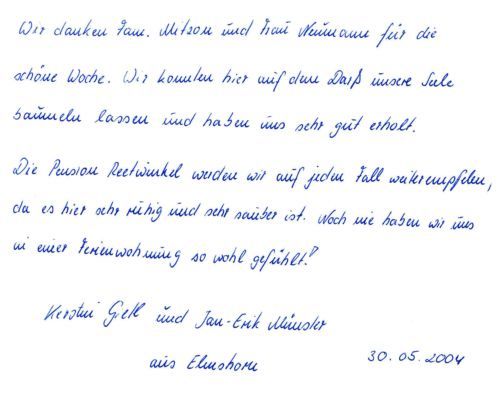 Wir danken Fam. Mitzon und Frau Neumann für die
schöne Woche. Wir konnten hier auf dem Darß unsere Seele
baumeln lassen und haben uns sehr gut erholt.
Die Pension Reetwinkel werden wir auf jeden Fall weiterempfelen,
da es hier sehr ruhig und sehr sauber ist. Noch nie haben wir uns
in einer Ferienwohnung so wohl gefühlt!
Kerstin und Jan-Erik Münster
aus Elmshorn
30.05.2004